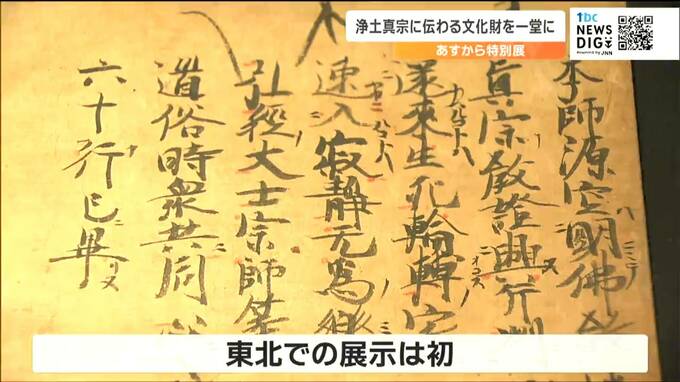 浄土真宗に伝わる文化財を一堂に
あすから特別展
tbc
NEWS
DIG
Powered by JNN
本師源空明佛
真宗教證興行
還來生死輪轉家
速入寂靜无爲樂
弘經大士宗師等
道俗時衆共同
六十行已畢
東北での展示は初